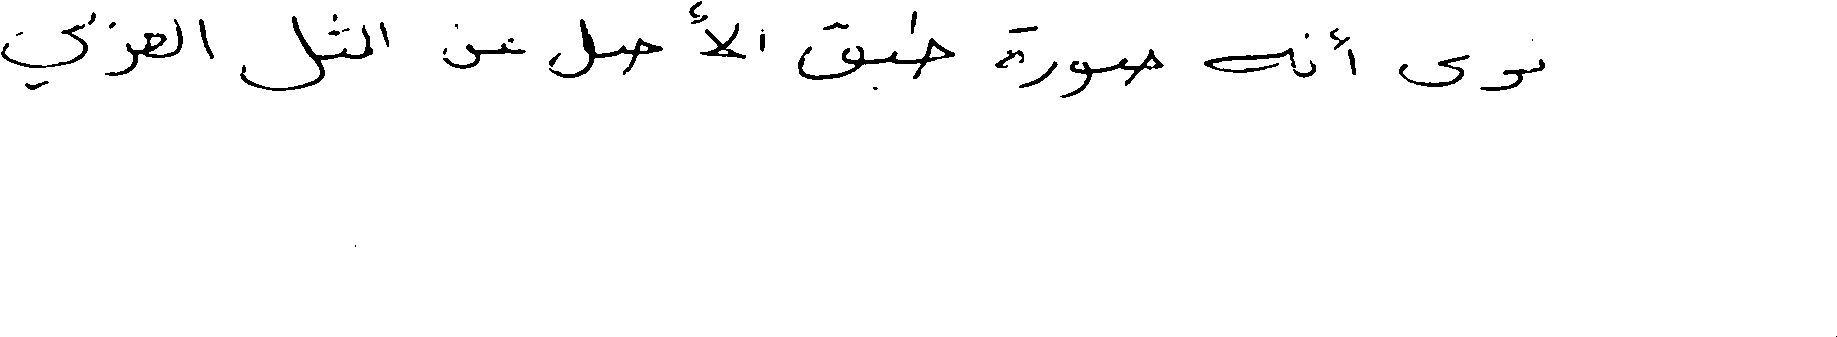 نوى أنه صورة طبق الأصل عن المثل العربي